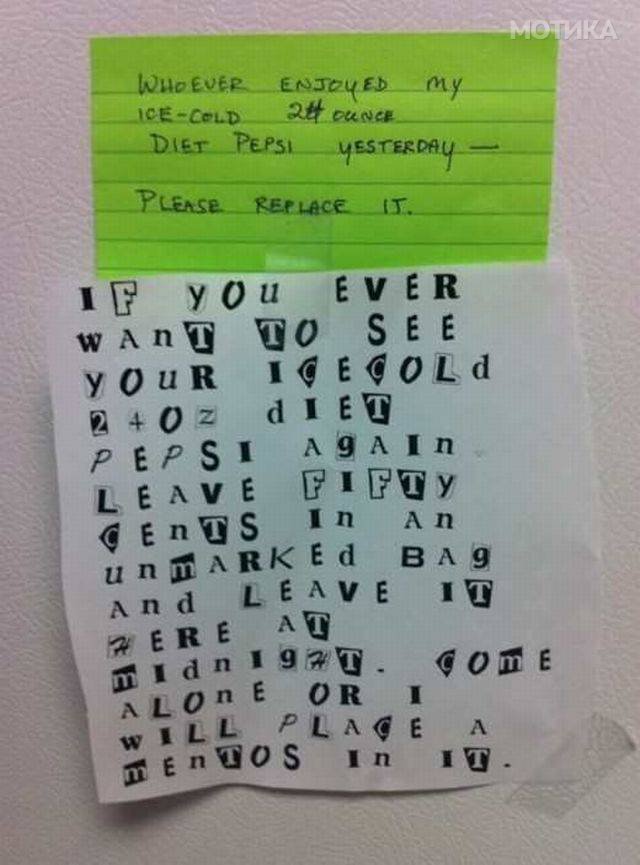 МОТИКА
WHOEVER ENJOYED MY
ICE-COLD 24 OUNCE
DIET PEPSI YESTERDAY —
PLEASE REPLACE IT.
IF yOu EVER
wAnT TO SEE
yOuR ICECOLd
24Oz dIET
PEPSI AgAIn.
LEAVE FIFTy
CEnTS In An
unmARKEd BAg
And LEAVE IT
HERE AT
mIdnIgHT. COmE
ALOnE OR I
wILL PLACE A
mEnTOS In IT.